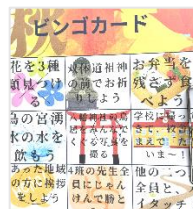 ビンゴカード
花を3種
類見つけ
る
双体道祖神
の前でお祈
りしよう
お弁当を
残さず食
べよう
島の宮湧
水の水を
飲もう
写真を
撮る
学校に帰っ
まえで「た
だいま〜」
あった地域
の方に挨拶
をしよう
4班の先生全
員にじゃん
けんで勝と
他の二つ
全員と、
イタッチ